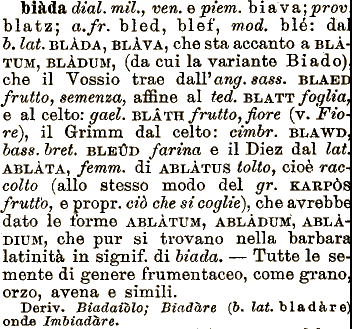 biàda dial. mil., ven. e piem. biava; prov.
blatz; a.fr. bled, blef, mod. blé: dal
b. lat. BLÀDA, BLÀVA, che sta accanto a BLÀ-
TUM, BLÀDUM, (da cui la variante Biado),
che il Vossio trae dall'ang. sass. BLAED
frutto, semenza, affine al ted. BLATT foglia,
e al celto: gael. BLÀTH frutto, fiore (v. Fio-
re), il Grimm dal celto: cimbr. BLAWD,
bass. bret. BLEÛD farina e il Diez dal lat.
ABLÀTA, femm. di ABLÀTUS tolto, cioè rac-
colto (allo stesso modo del gr. KARPÒS
frutto, e propr. ciò che si coglie), che avrebbe
dato le forme ABLÀTUM, ABLÀDUM, ABLÀ-
DIUM, che pur si trovano nella barbara
latinità in signif. di biada. — Tutte le se-
mente di genere frumentaceo, come grano,
orzo, avena e simili.
Deriv. Biadaiòlo; Biadàre (b. lat. bladàre)
onde Imbiadàre.